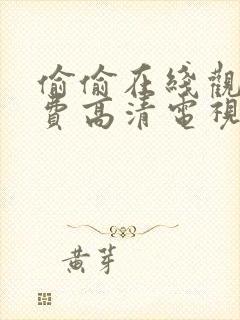 偷偷在綫觀
費高清電視
黄芽